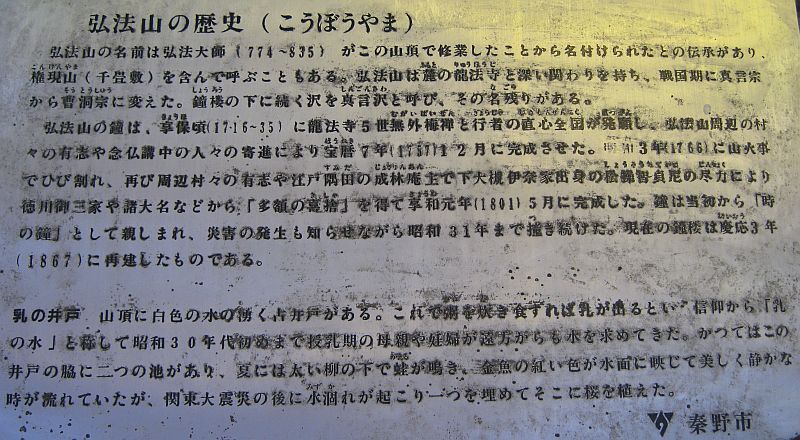 弘法山の歴史（こうぼうやま）
弘法山の名前は弘法大師（774~835）がこの山頂で修業したことから名付けられたとの伝承があり、
権現山（千畳敷）を含んで呼ぶこともある。弘法山は麓の龍法寺と深い関わりを持ち、戦国期に真言宗
から曹洞宗に変えた。鐘楼の下に続く沢を真言沢と呼び、その名残りがある。
弘法山の鐘は、享保頃（1716~35）に龍法寺5世無外梅禅と行者の直心全国が発願し、弘法山周辺の村
々の有志や念仏講中の人々の寄進により宝暦7年（1757）12月に完成させた。3年（1766）に山火事
でひび割れ、再び周辺村々の有志や江戸隅田の成林庵主で下大槻伊奈家出身の智貞尼の尽力により
徳川御三家や諸大名などから、「多額の喜捨」を得て享和元年（1801）5月に完成した。鐘は当初から「時
の鐘」として親しまれ、災害の発生も知らせながら昭和31年まで撞き続けた。現在の鐘楼は慶応3年
（1867）に再建したものである。
乳の井戸　山頂に白色の水の湧く古井戸がある。これで粥を炊き食すれば乳が出るという信仰から「乳
の水」と称して昭和30年代初めまで授乳期の母親や妊婦が遠方からも水を求めてきた。かつてはこの
井戸の脇に二つの池があり、夏には太い柳の下で蛙が鳴き、金魚の紅い色が水面に映じて美しく静かな
時が流れていたが、関東大震災の後に水涸れが起こり一つを埋めてそこに桜を植えた。
秦野市